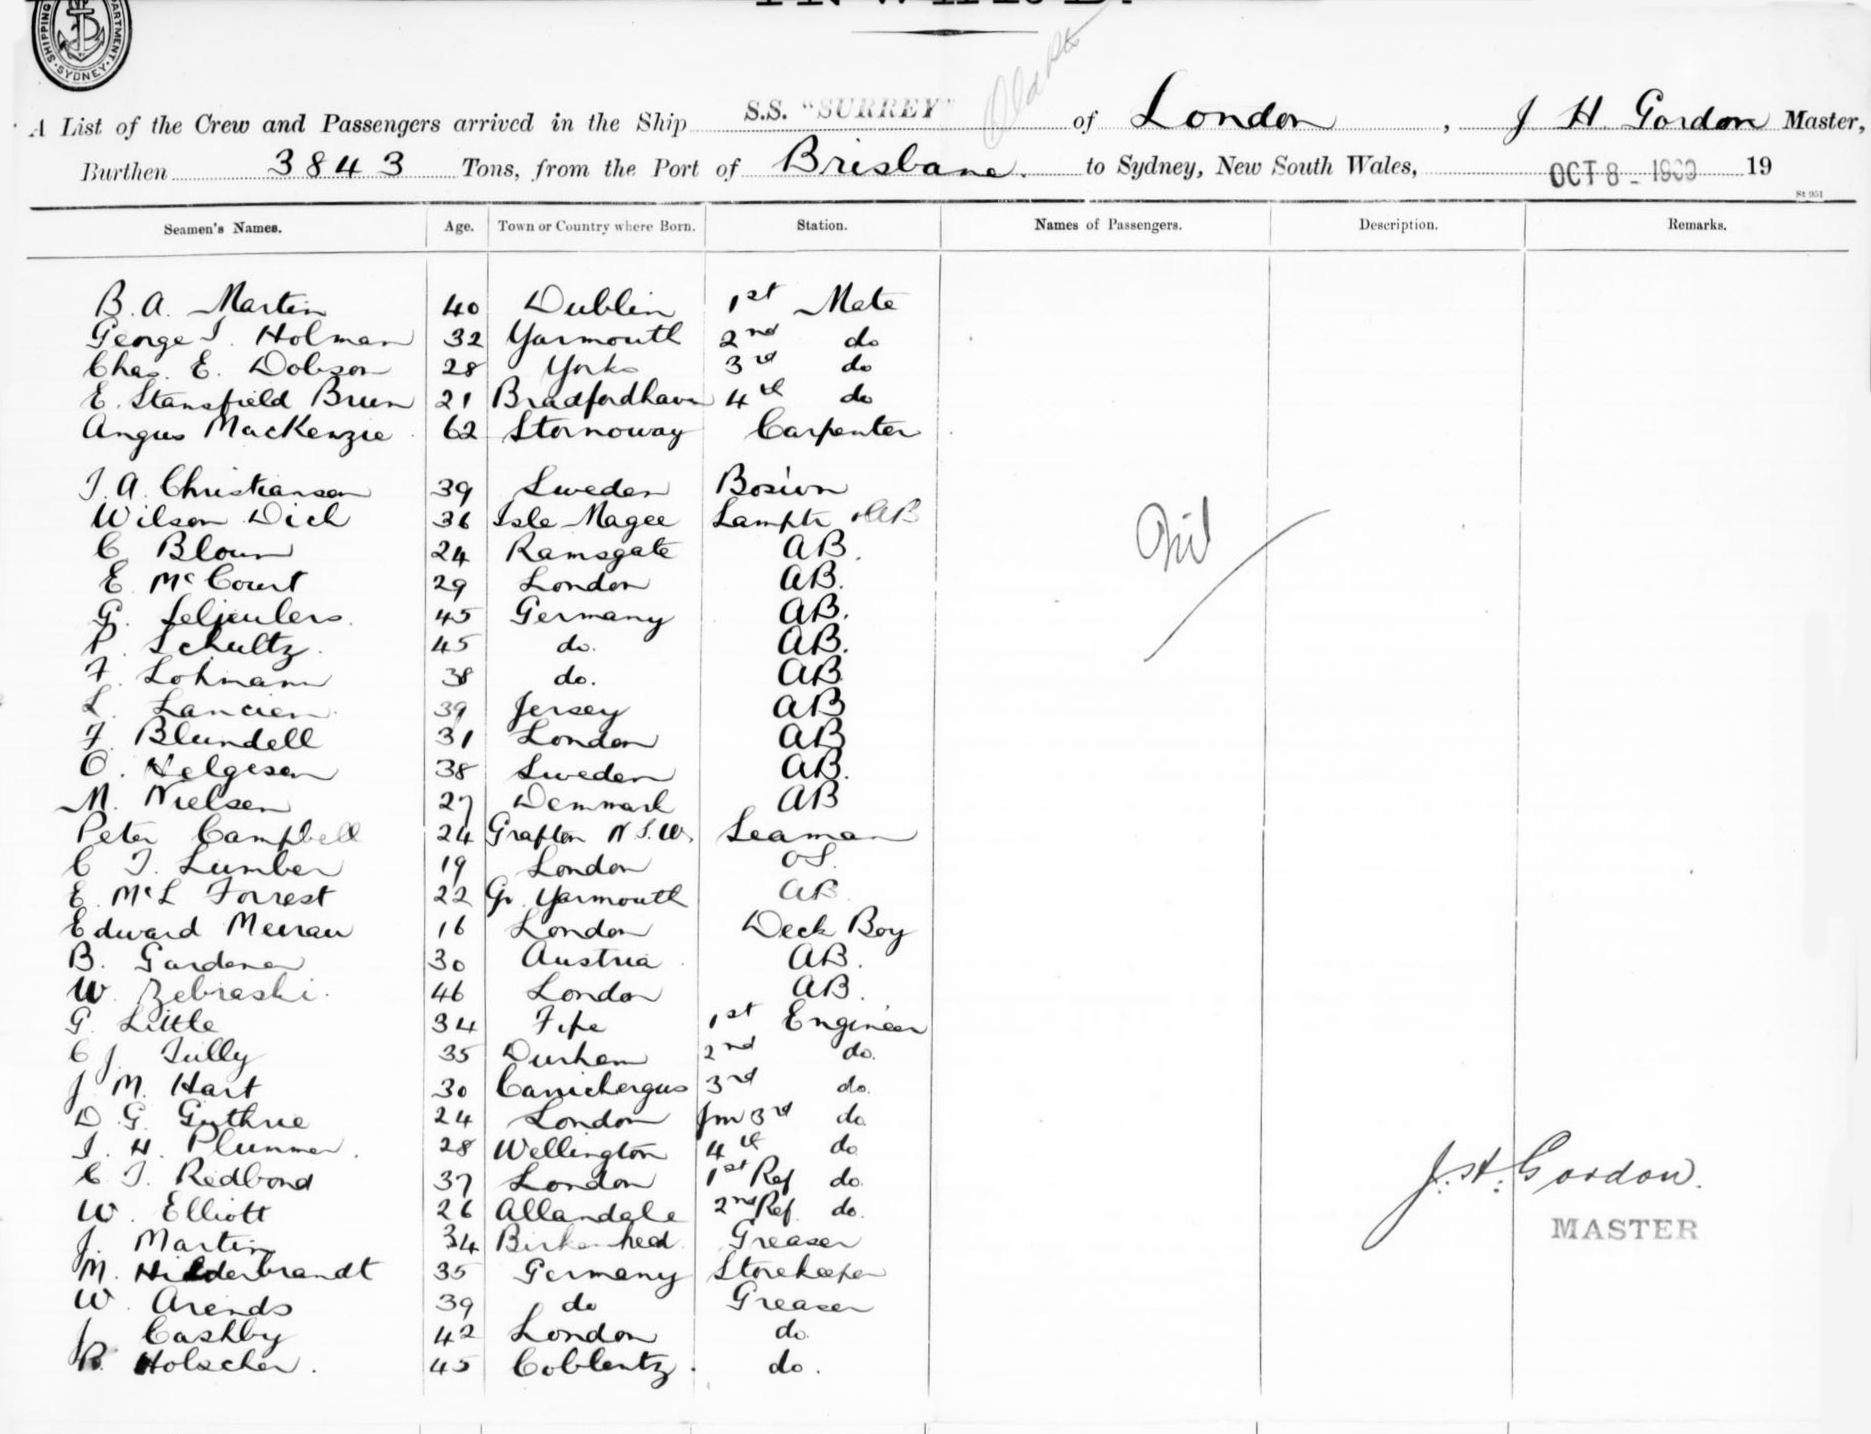 INWARD.
SHIPPING DEPARTMENT. SYDNEY.
A List of the Crew and Passengers arrived in the Ship S.S. "SURREY" of London, J H. Gordon Master,
Burthen 3843 Tons, from the Port of Brisbane. to Sydney, New South Wales, OCT 8 - 1909 19
St 951
Seamen's Names. Age. Town or Country where Born. Station. Names of Passengers. Description. Remarks.
B. A. Martin 40 Dublin 1st Mate
George J. Holman 32 Yarmouth 2nd do
Chas. E. Dobson 28 Yorks 3rd do
E. Stansfield Brun 21 Bradfordhaven 4th do
Angus MacKenzie 62 Stornoway Carpenter
J. A. Christiansen 39 Sweden Bosiun
Wilson Dick 36 Isle Magee Lamptr & AB
C Bloun 24 Ramsgate AB.
Nil
E. McCourt 29 London AB.
G. 45 Germany AB.
P. Schultz. 45 do. AB.
F. Lohmann 38 do. AB
L. Lancien. 39 Jersey AB
F. Blundell 31 London AB
O. Helgesen 38 Sweden AB.
M. Nielsen 27 Denmark AB
Peter Campbell 24 Grafton N.S.W. Seaman
C T. Lumber 19 London OS.
E. McL Forrest 22 Gr. Yarmouth AB.
Edward 16 London Deck Boy
B. Gardener 30 Austria AB.
W. Zebraski. 46 London AB.
G. Little 34 Fife 1st Engineer
C J. Tully 35 Durham 2nd do.
J. M. Hart 30 Carrickergus 3rd do.
D. G. Guthrie 24 London Jnr 3rd do.
J. H. Plummer. 28 Wellington 4th do
C T. Redbond 37 London 1st Ref do.
J. H. Gordon.
W. Elliott 26 Allandale 2nd Ref. do.
MASTER
J. Martin 34 Birkenhead Greaser
M. Hilderbrandt 35 Germany Storekeeper
W. Arends 39 do Greaser
J. Cashby 42 London do.
B. Holscher. 45 Coblentz. do.